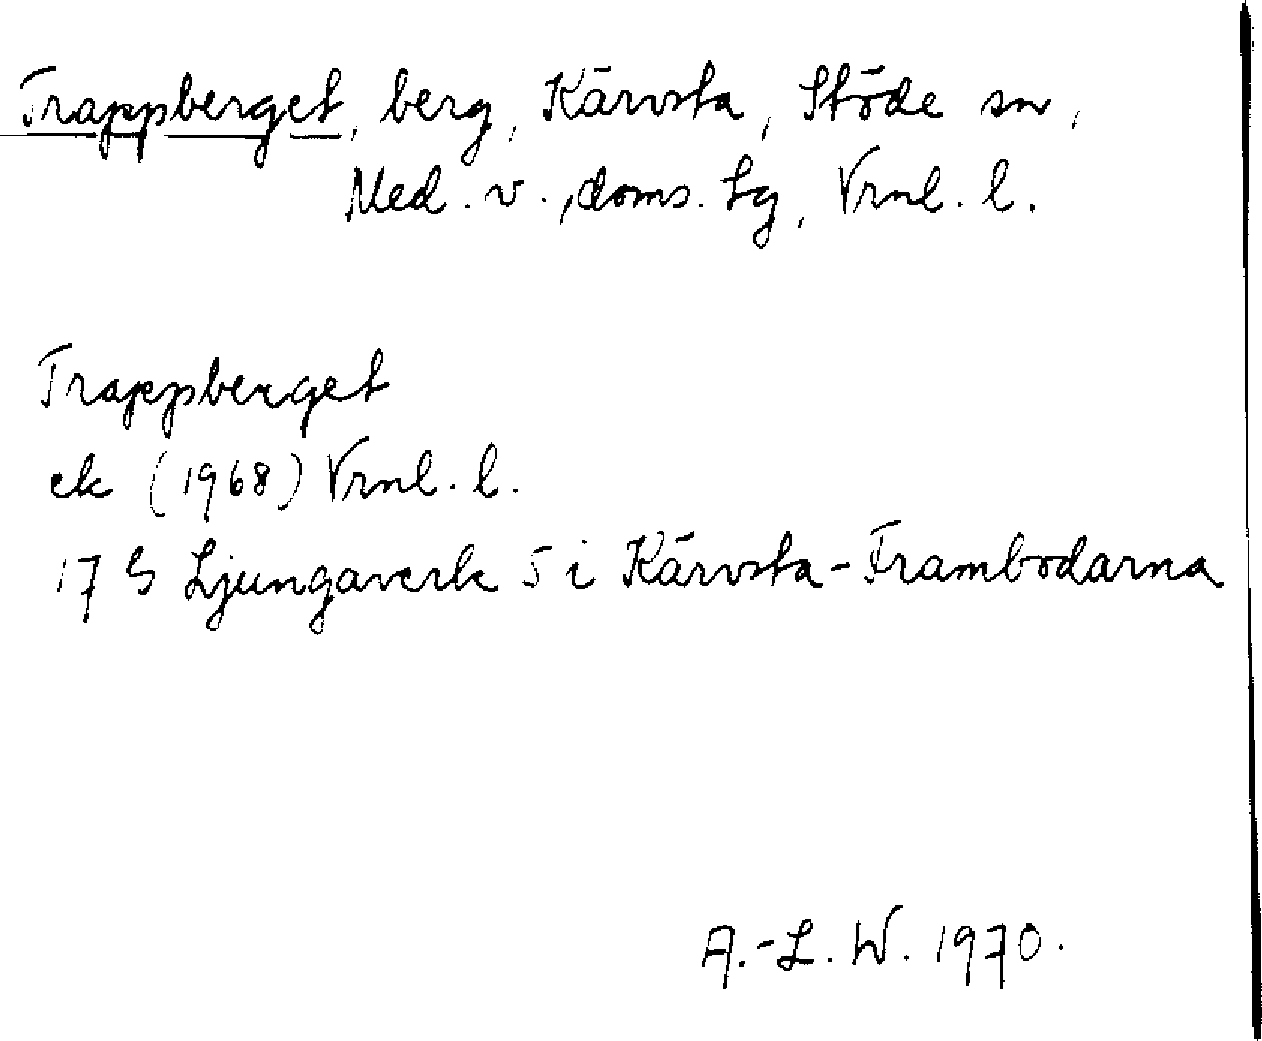 Trappberget, berg, Kärvsta, Stöde sn,
Med. v., doms. tg, Vrnl. l.
Trappberget
ek (1968) Vrnl. l.
17 G Ljungaverk 5 i Kärvsta-Frambodarna
A.-L. W. 1970.